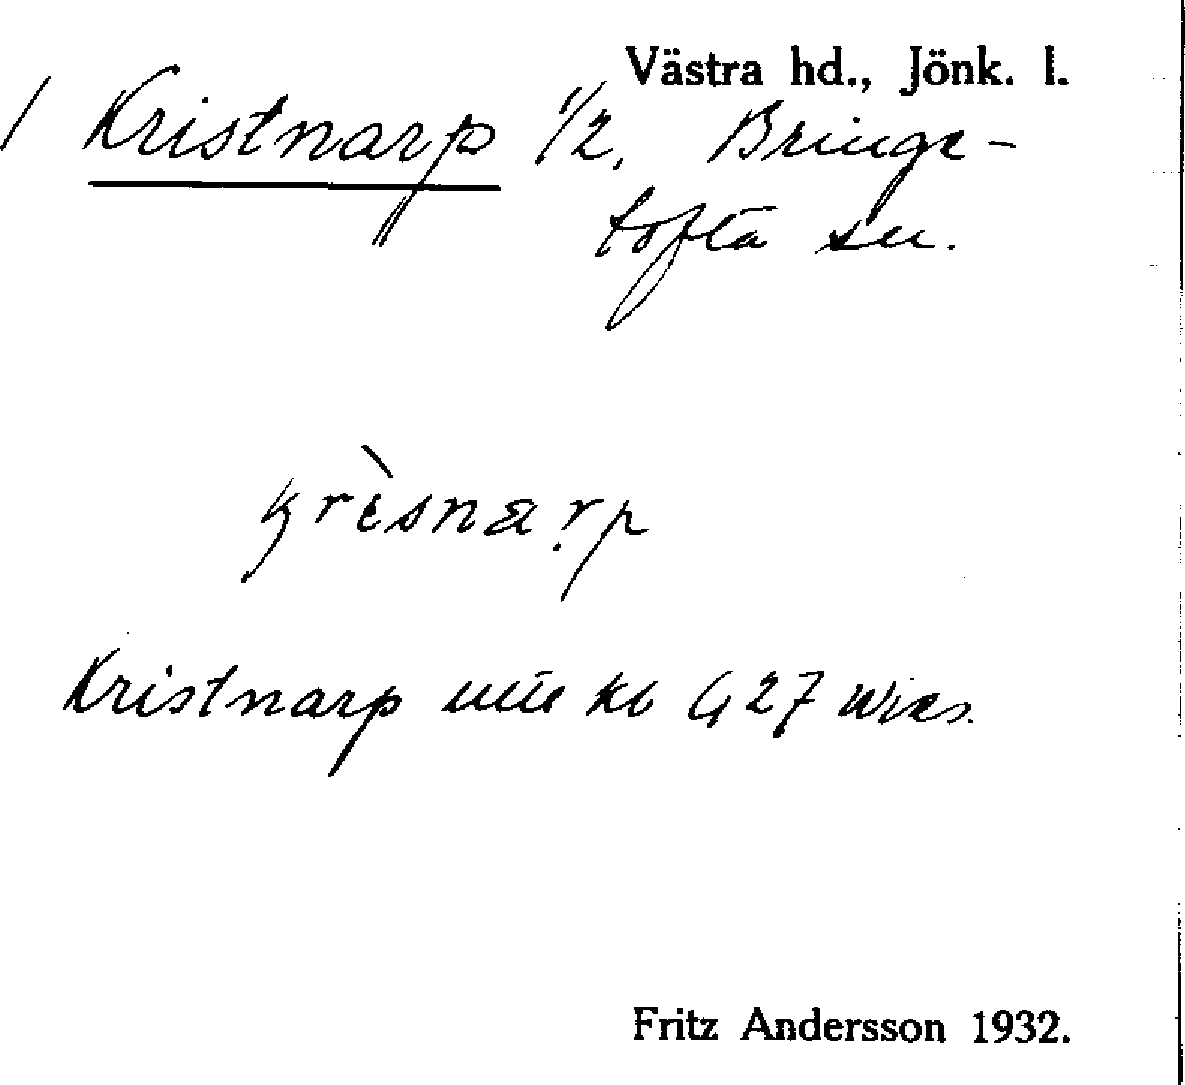 Västra hd., Jönk. l.
/ Kristnarp 1/2, Bringe-
tofta sn.
krèsnarp
Kristnarp min kb G 27
Fritz Andersson 1932.